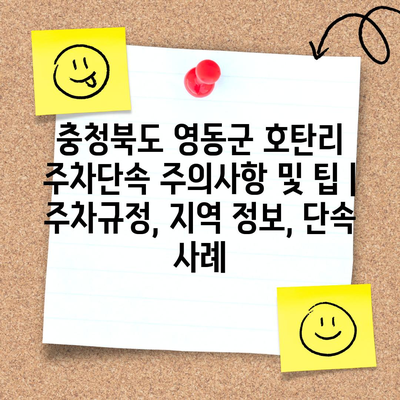 충청북도 영동군 호탄리
주차단속 주의사항 및 팁 |
주차규정, 지역 정보, 단속
사례